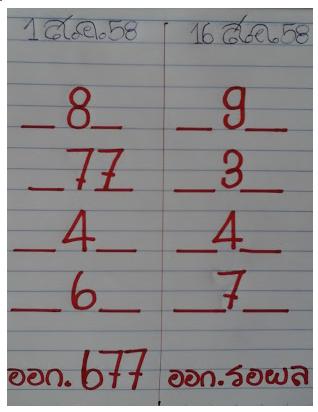 1 ส.ค.58 16 ส.ค.58
_8_ _9_
_77_ _3_
_4_ _4_
_6_ _7_
ออก.677 ออก.รอผล